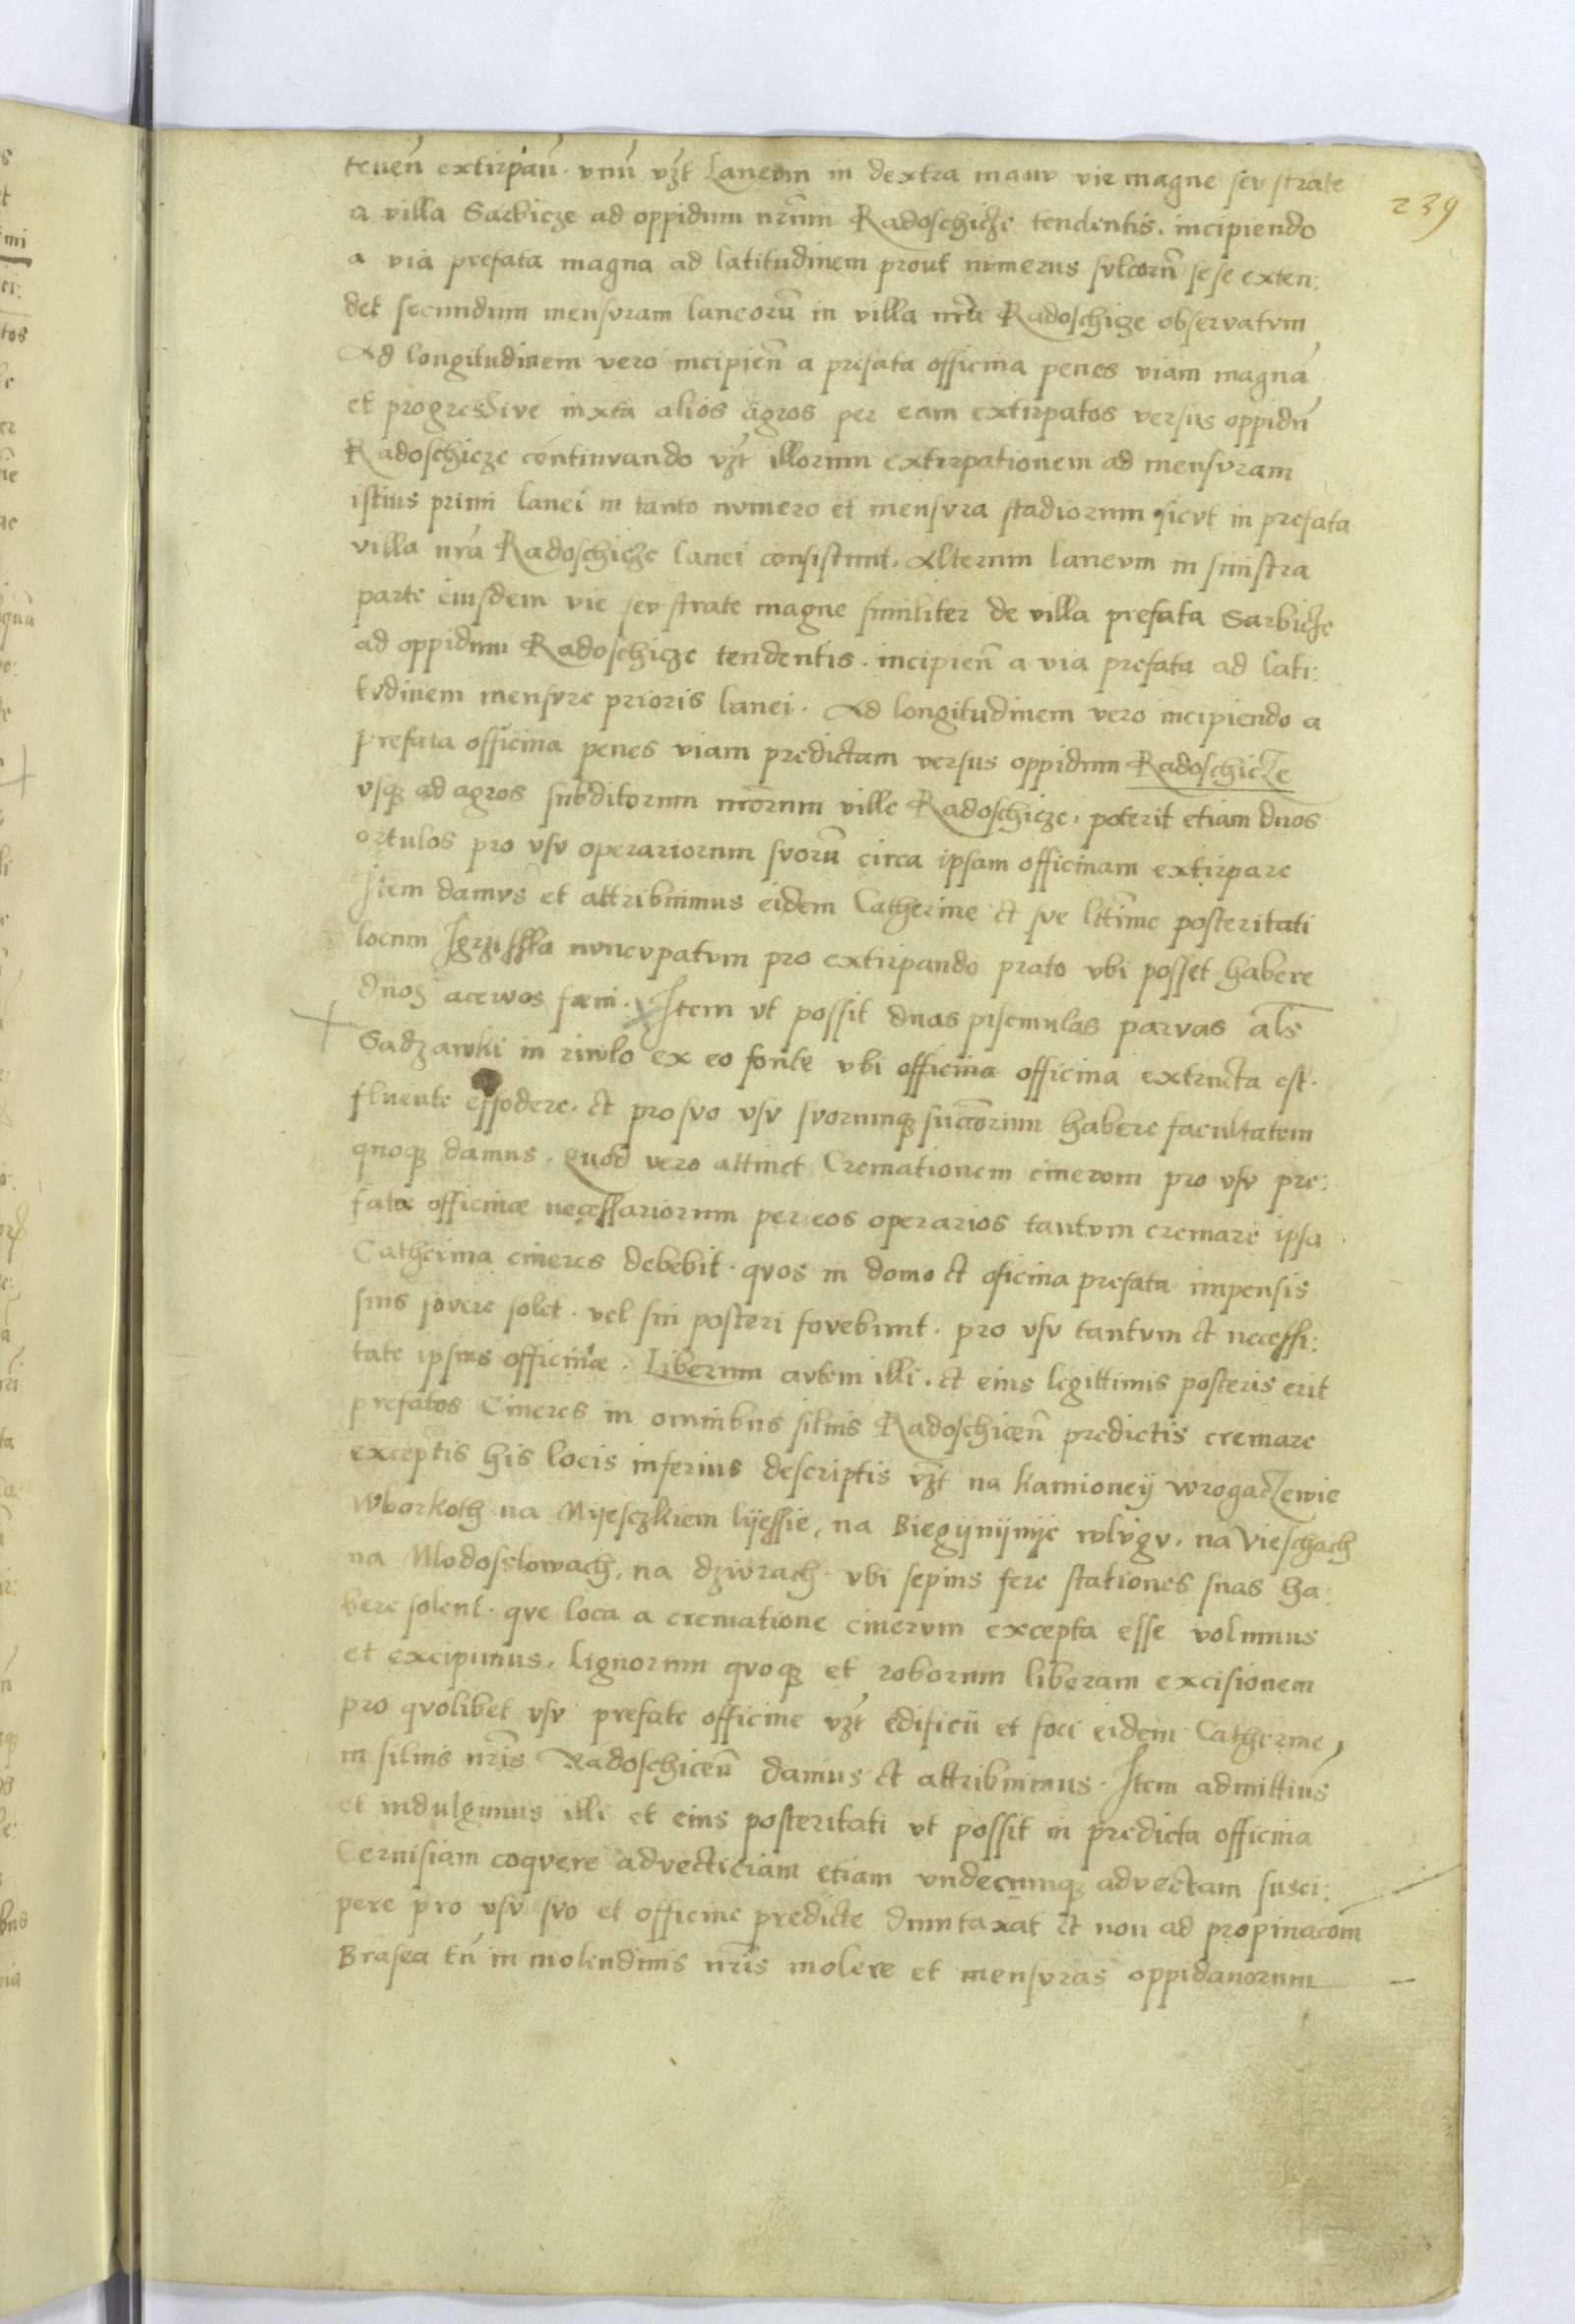 239
teuen̄ extirpan̄. vnū vʒt Laneum in dextra manu vie magne seu strate
a villa Sarbicze ad oppidum nr̄um Radoschicze tendentis. incipiendo
a via prefata magna ad latitudinem prout numerus sulcorū sese exten:
det secundum mensuram laneorū in villa nr̄a Radoschicze observatum
Ad longitudinem vero incipien̄ a prefata officina penes viam magnā
et progressive iuxta alios agros per eam extirpatos versus oppidū
Radoschicze continuando vʒt illorum extirpationem ad mensuram
istius primi lanei in tanto numero et mensura stadiorum sicut in prefata
villa nr̄a Radoschicze lanei consistunt. Alterum laneum in sinistra
parte eiusdem vie seu strate magne similiter de villa prefata Sarbicze
ad oppidum Radoschicze tendentis. incipien̄ a via prefata ad lati:
tudinem mensure prioris lanei. Ad longitudinem vero incipiendo a
prefata officina penes viam predictam versus oppidum Radoschicze
vsqʒ ad agros subditorum nr̄orum ville Radoschicze. poterit etiam duos
ortulos pro vsu operariorum suorū circa ipsam officinam extirpare
Item damus et attribuimus eidem Catherine et sue ltt̄ime posteritati
locum Igrziskla nuncupatum pro extirpando prato vbi posset habere
duos acervos fæni. Item vt possit duas piscinulas parvas al̄s
Sadzawki in riwlo ex eo fonte vbi officina officina extructa est.
fluente effodere. et pro suo vsu suorumqʒ succ̄orum habere facultatem
quoqʒ damus. Quod vero attinet Cremationem cinerum pro vsu pre:
fatæ officinæ necessariorum per eos operarios tantum cremare ipsa
Catherina cineres debebit. quos in domo et oficina prefata impensis
suis fovere solet. vel sui posteri fovebunt. pro vsu tantum et necessi:
tate ipsius officinæ. Liberum autem illi. et eius legittimis posteris erit
prefatos Cineres in omnibus silvis Radoschicen̄ predictis cremare
exceptis his locis inferius descriptis vʒt na Kamioneÿ wrogaczewie
Wborkoth na Mÿesczkiem lÿessie, na Biegÿnÿnÿe wlugv. na Vieschach
na Mlodosslowach, na dziurach vbi sepius fere stationes suas ha:
bere solent. que loca a crematione cinerum excepta esse volumus
et excipimus. Lignorum quoqʒ et roborum liberam excisionem
pro quolibet vsu prefate officine vʒt edificii et foci eidem Catherine,
in silvis nr̄is Radoschicen̄ damus et attribuimus. Item admittim̄s
et indulgimus illi et eius posteritati vt possit in predicta officina
Cervisiam coquere advecticiam etiam vndecumqʒ advectam susci:
pere pro vsu suo et officine predicte duntaxat et non ad propinacōm
Brasea tn̄ in molendinis nr̄is molere et mensuras oppidanorum